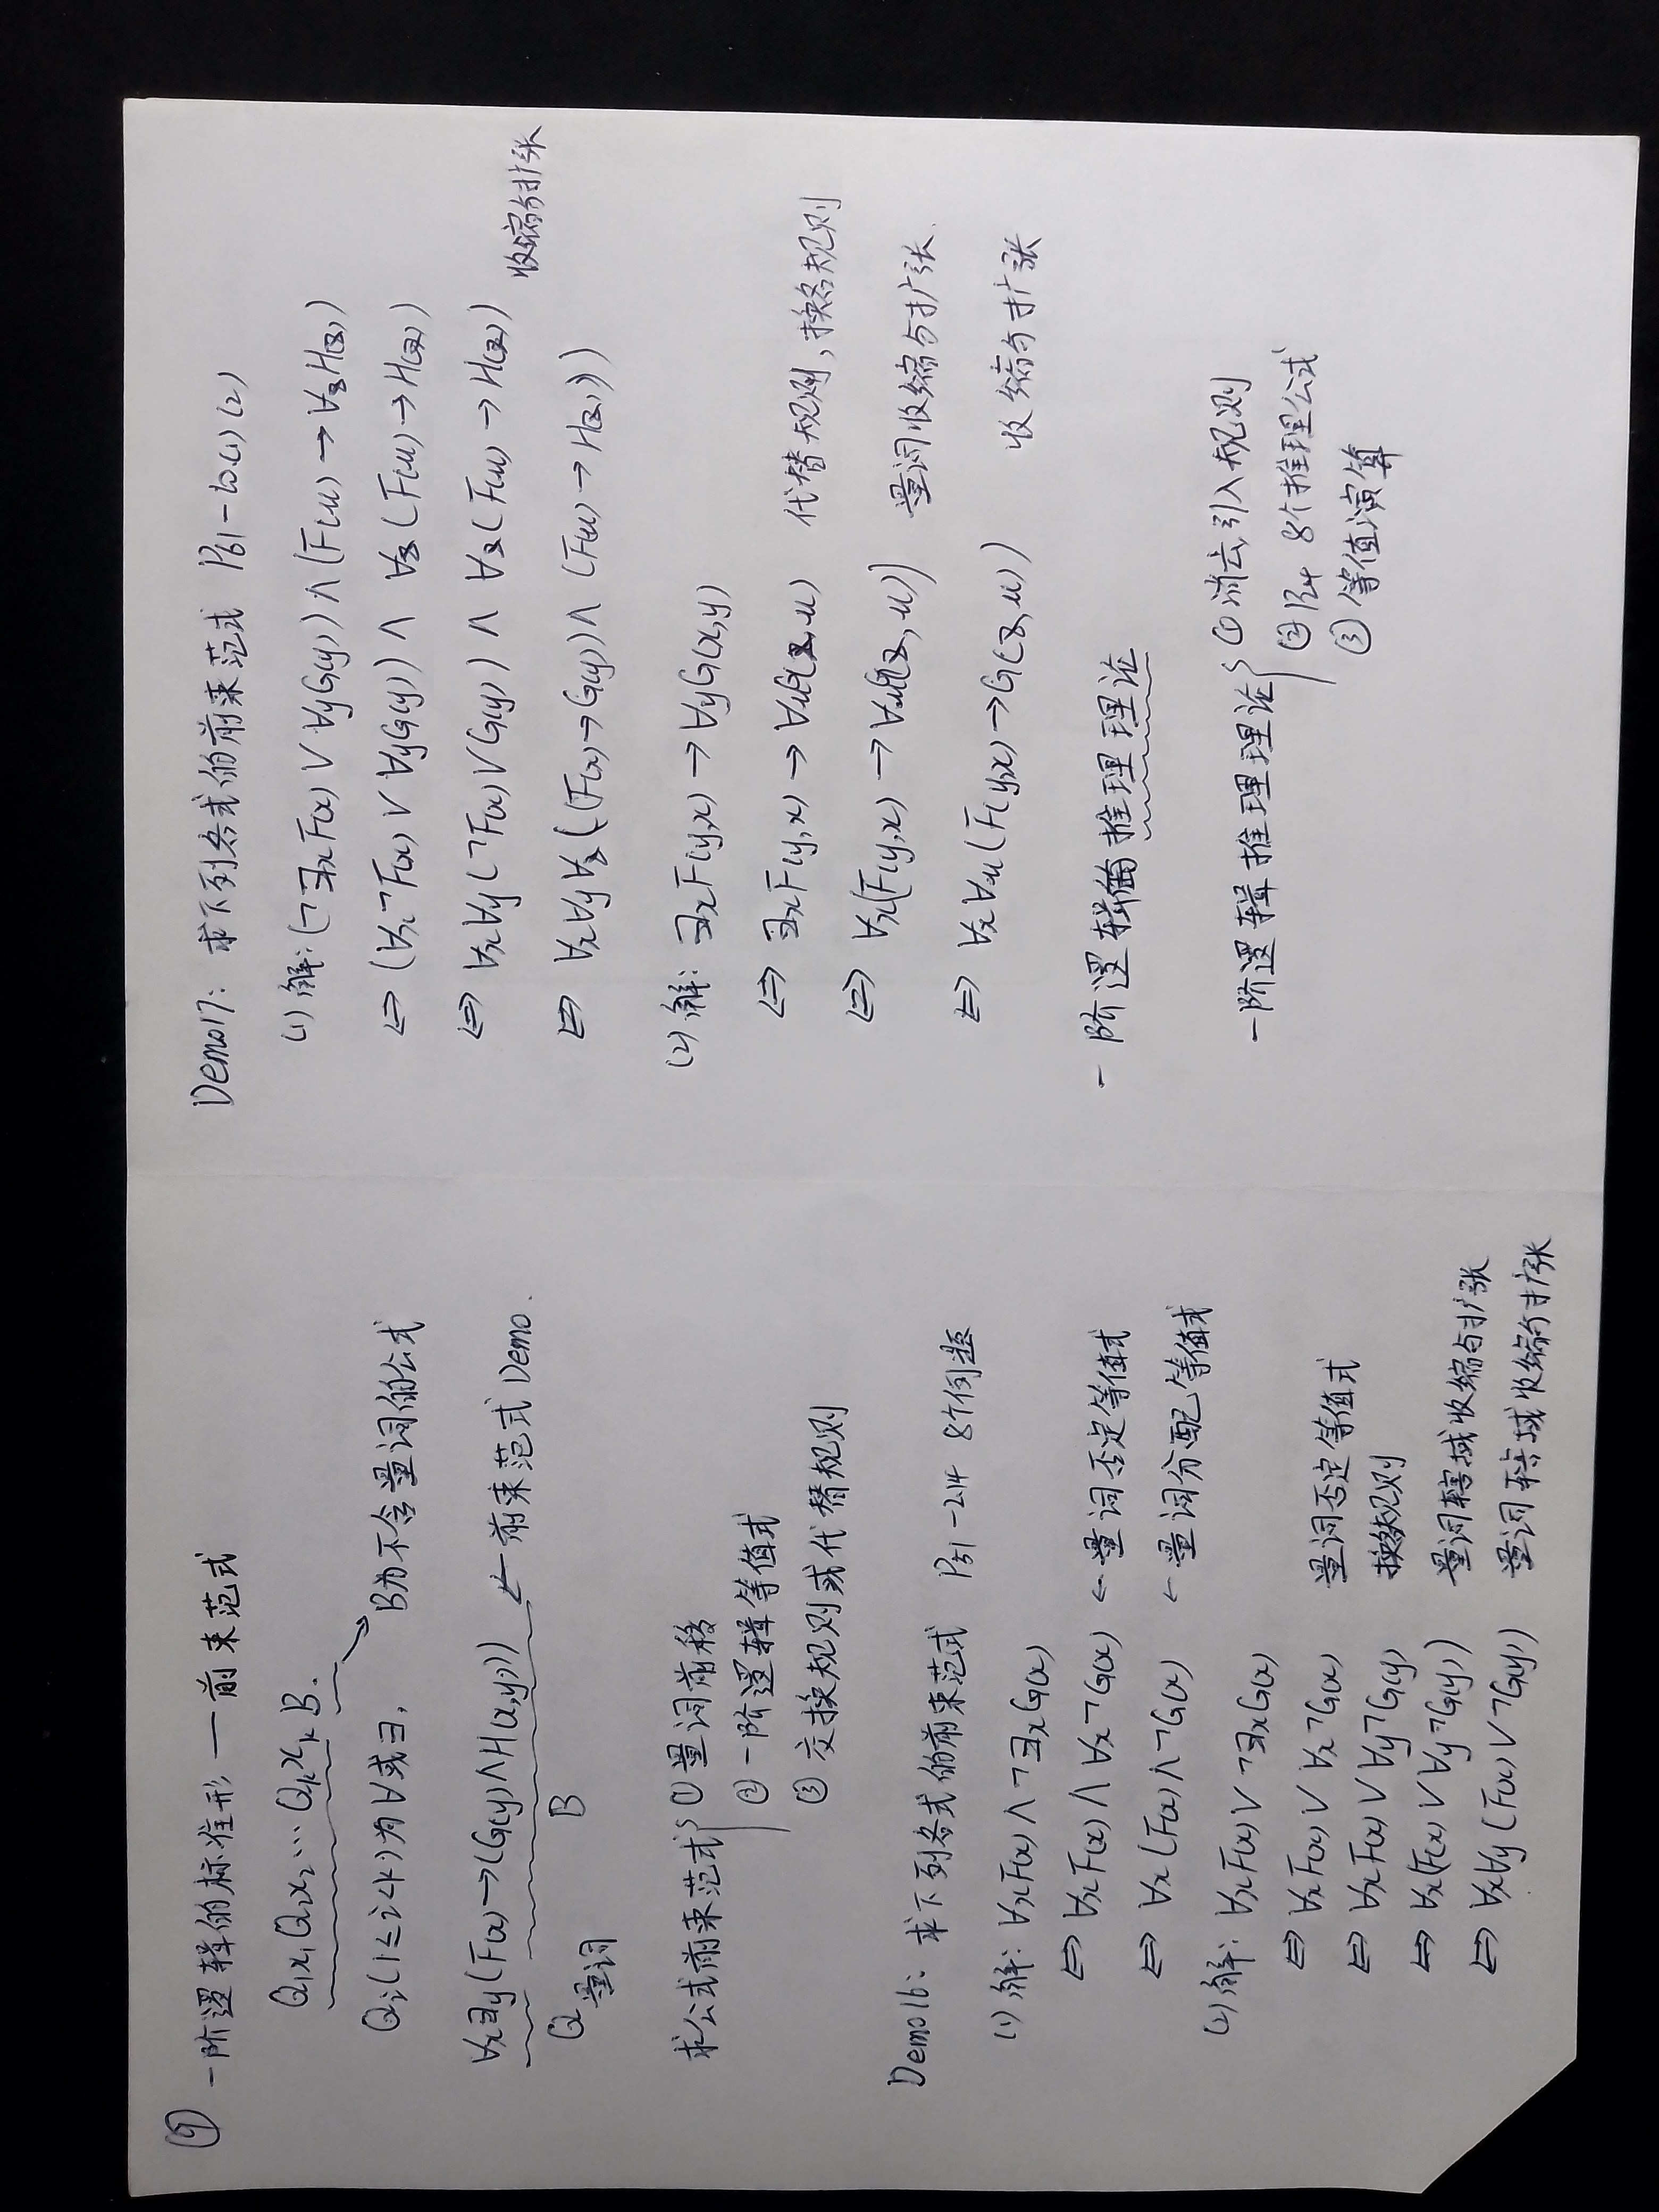 ⑨
一阶逻辑的标准形 — 前束范式
Q₁x₁Q₂x₂…QₖxₖB.
Qᵢ(1≤i<k)为∀或∃, B为不含量词的公式
∀x∃y(F(x)→(G(y)∧H(x,y))) ← 前束范式 Demo.
Q 量词 B
求公式前束范式 ① 量词前移
② 一阶逻辑等值式
③ 交换规则或代替规则
Demo16: 求下列各式的前束范式 P51-2.14 8个例题
(1) 解: ∀xF(x)∧¬∃xG(x)
⇔ ∀xF(x)∧∀x¬G(x) ← 量词否定等值式
⇔ ∀x(F(x)∧¬G(x) ← 量词分配等值式
(2) 解: ∀xF(x)∨¬∃xG(x)
⇔ ∀xF(x)∨∀x¬G(x) 量词否定等值式
⇔ ∀xF(x)∨∀y¬G(y) 换名规则
⇔ ∀x(F(x)∨∀y¬G(y)) 量词辖域收缩与扩张
⇔ ∀x∀y(F(x)∨¬G(y)) 量词辖域收缩与扩张
Demo17: 求下列各式的前束范式 P61- (1) (2)
(1) 解: (¬∃xF(x)∨∀yG(y))∧(F(u)→∀zH(z))
⇔ (∀x¬F(x)∨∀yG(y))∧∀z(F(u)→H(z))
⇔ ∀x∀y(¬F(x)∨G(y))∧∀z(F(u)→H(z)) 收缩与扩张
⇔ ∀x∀y∀z((F(x)→G(y))∧(F(u)→H(z)))
(2) 解: ∃xF(y,x)→∀yG(x,y)
⇔ ∃xF(y,x)→∀uG(z,u) 代替规则,换名规则
⇔ ∀x(F(y,x)→∀uG(z,u)) 量词收缩与扩张.
⇔ ∀x∀u(F(y,x)→G(z,u)) 收缩与扩张
一阶逻辑的推理理论
一阶逻辑推理理论 ① 消去,引入规则
② P24 8个推理公式
③ 等值演算